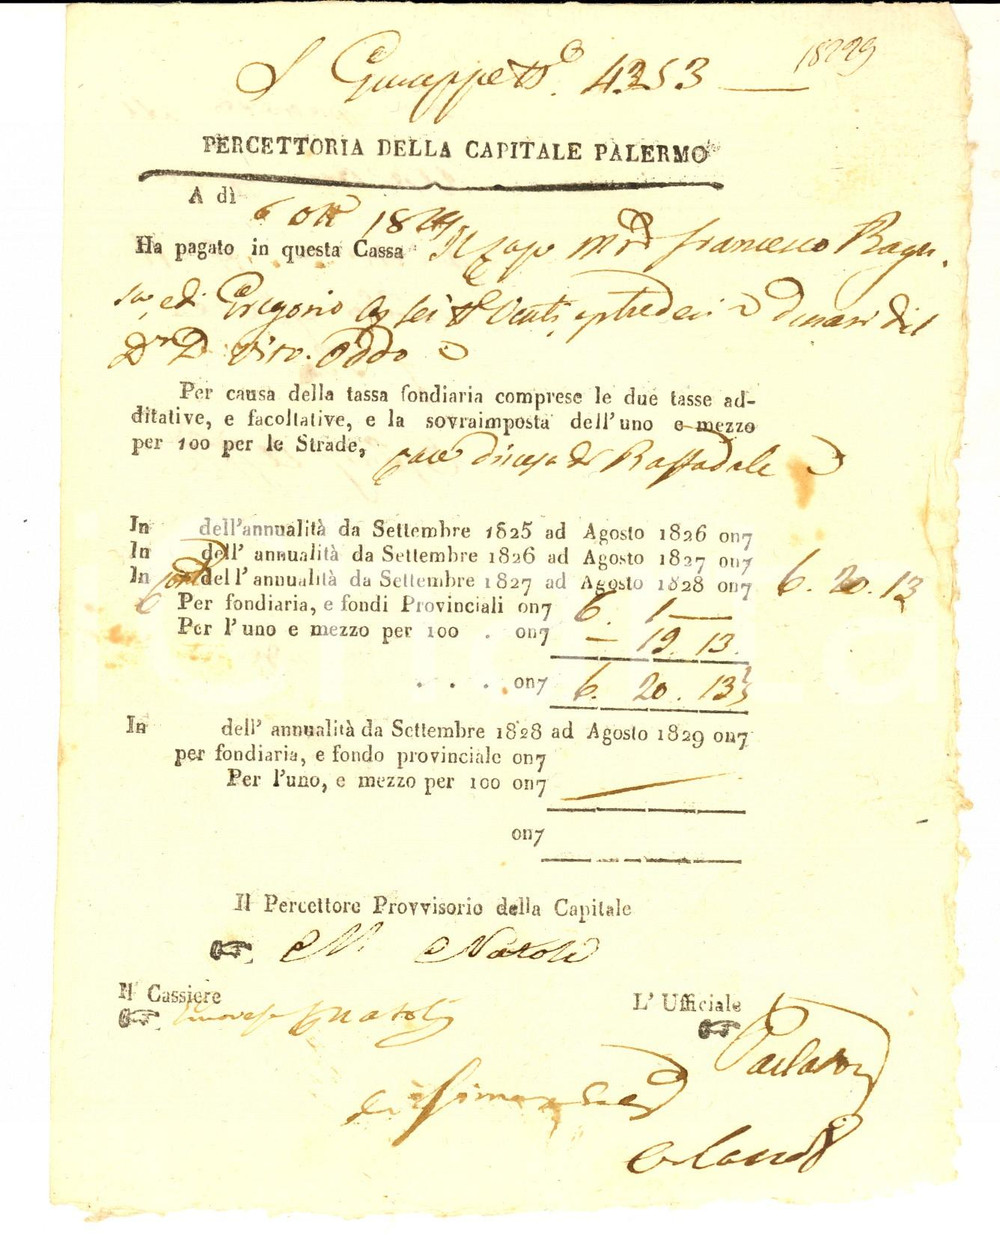 Giuseppe 4253
18229
PERCETTORIA DELLA CAPITALE PALERMO
A dì 6 Ott
Ha pagato in questa Cassa Francesco Ragu-
sa, e di Gregorio sei Venti, e tredeci denari del
Vito Oddo
Per causa della tassa fondiaria comprese le due tasse ad-
ditative, e facoltative, e la sovraimposta dell'uno e mezzo
per 100 per le Strade, Raffadale
In dell'annualità da Settembre 1825 ad Agosto 1826 on7
In dell' annualità da Settembre 1826 ad Agosto 1827 on7
In dell' annualità da Settembre 1827 ad Agosto 1828 on7 6. 20. 13
Per fondiaria, e fondi Provinciali on7 6. 1 —
Per l'uno e mezzo per 100 . on7 — 19. 13.
. . . on7 6. 20. 13
In dell' annualità da Settembre 1828 ad Agosto 1829 on7
per fondiaria, e fondo provinciale on7
Per l'uno, e mezzo per 100 on7
on7
Il Percettore Provvisorio della Capitale
M. Natoli
Il Cassiere
Natoli
L' Ufficiale
Orlando